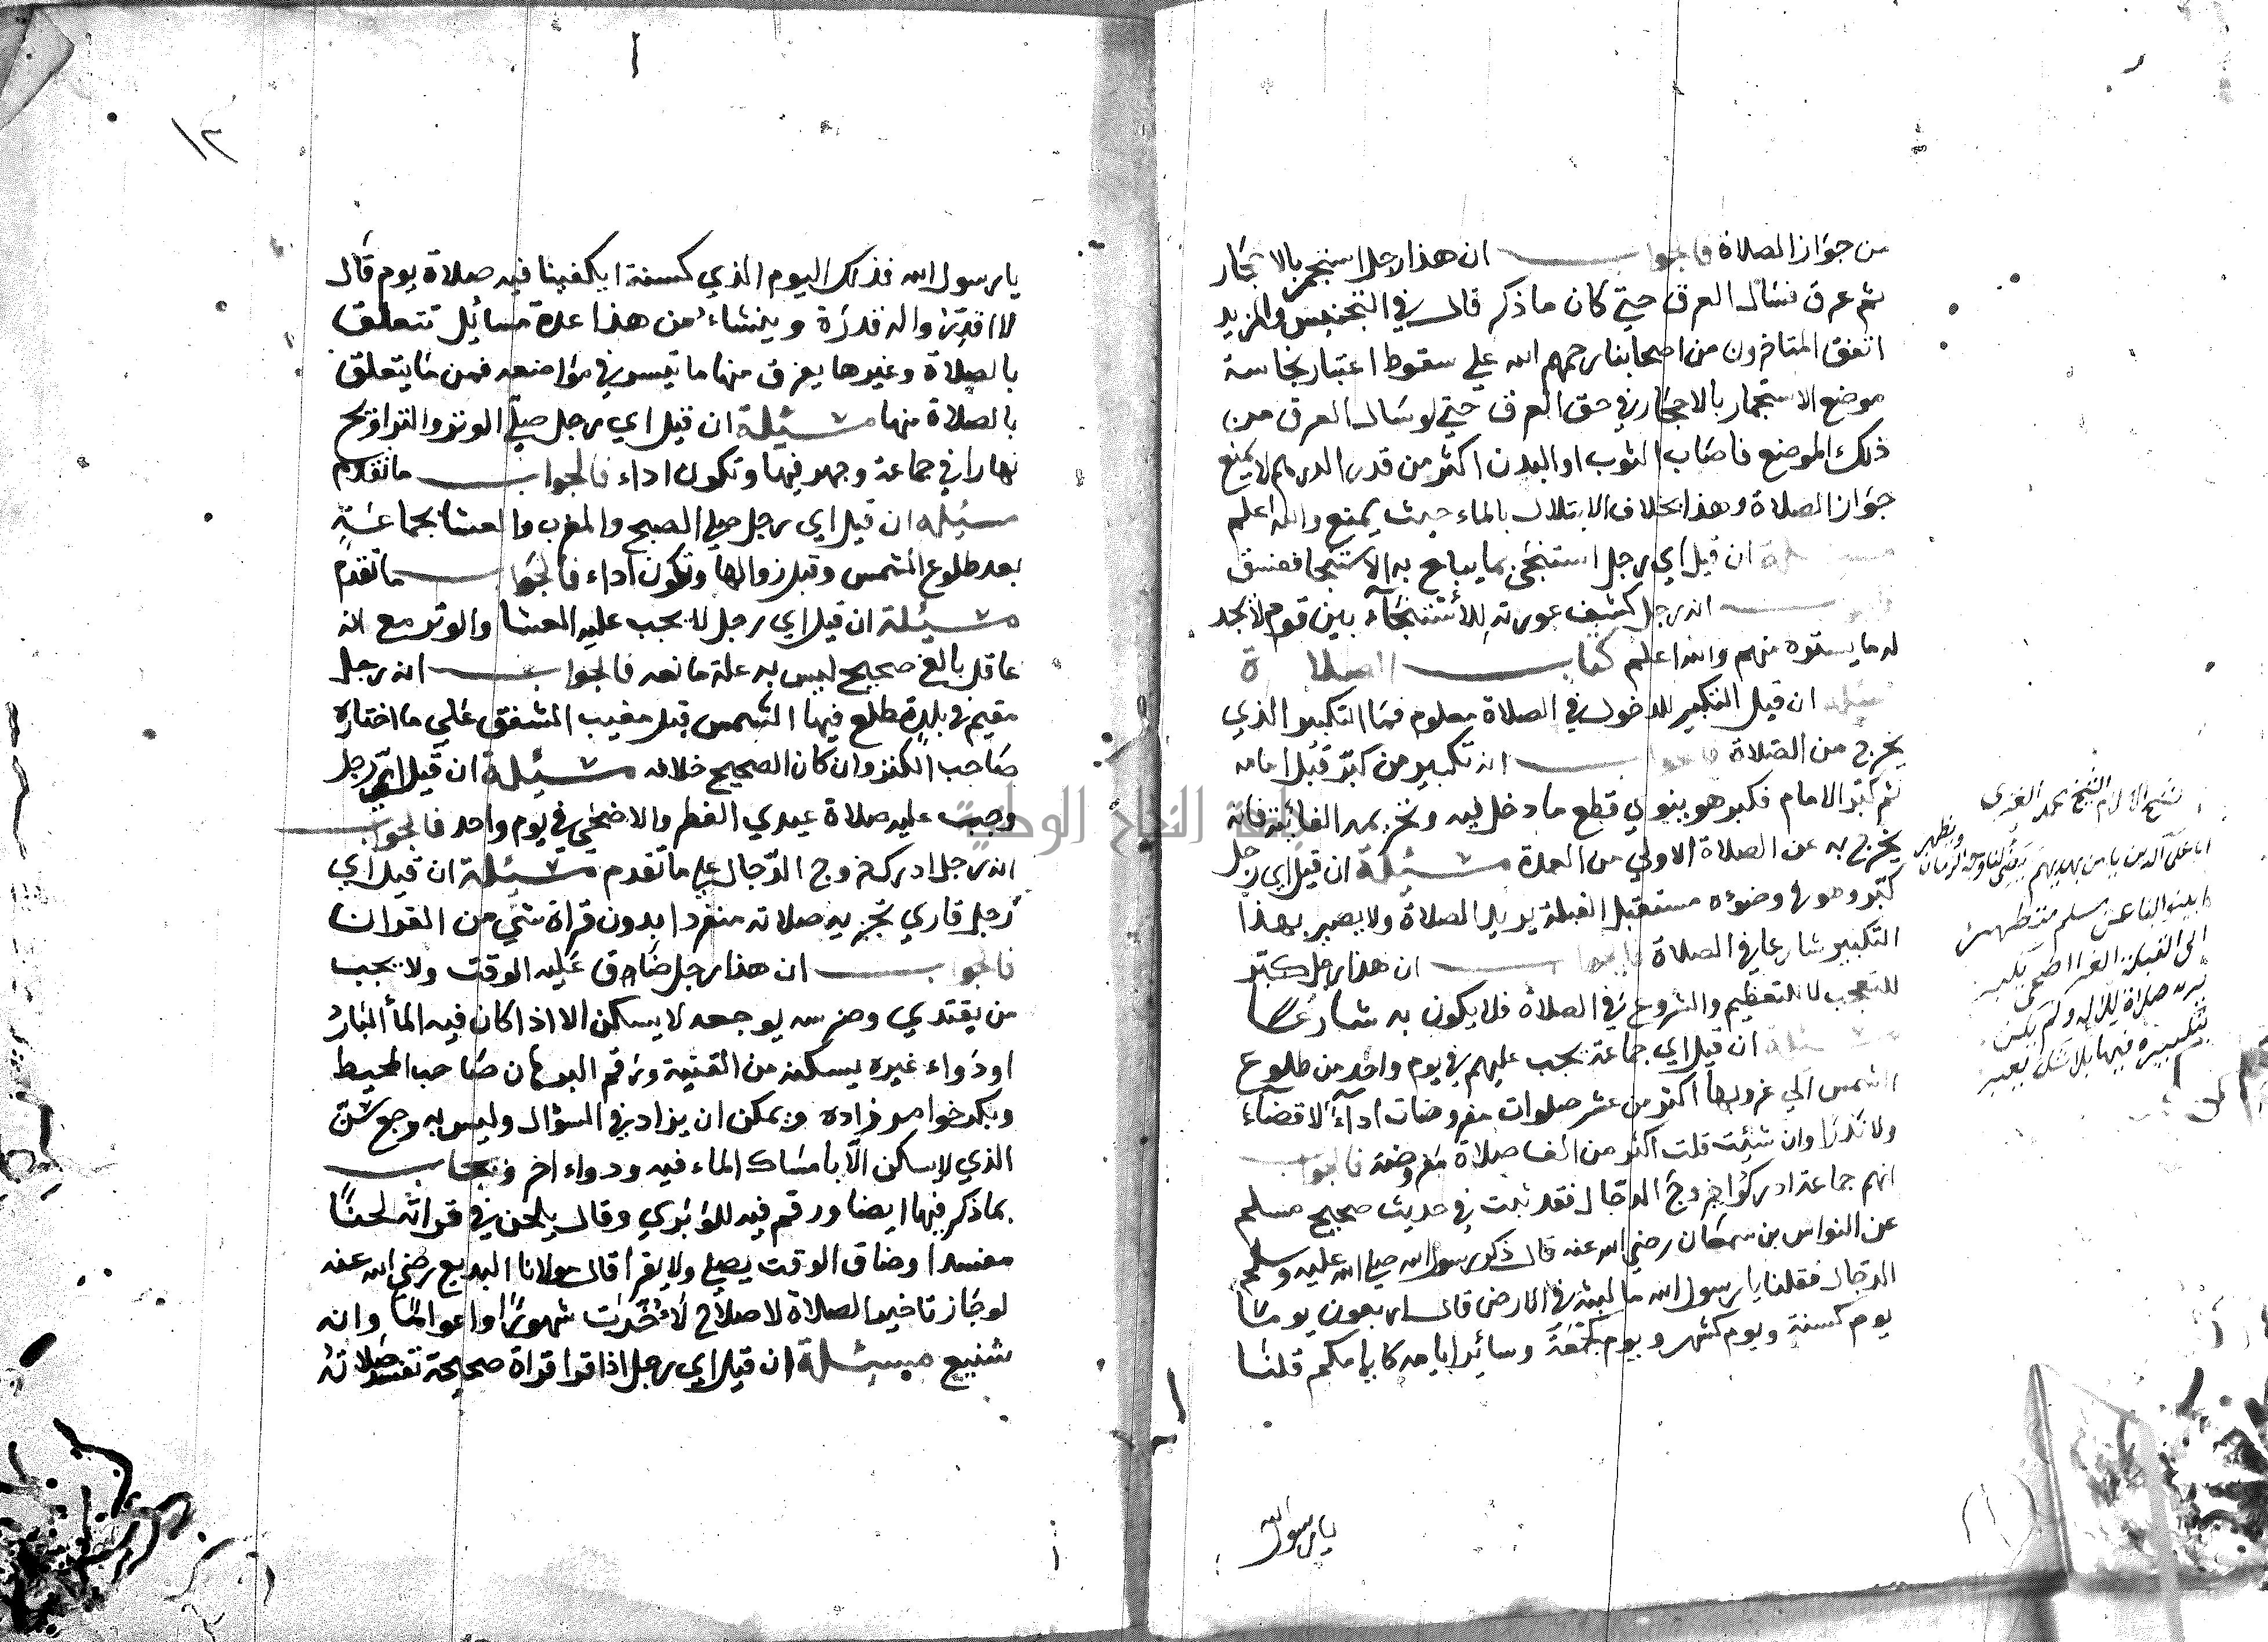 من جواز الصلاة فالجواب ان هذا رجل استنجمر بالاحجار
ثم عرق فسال العرق حتي كان ما ذكر قال في التجنيس والمزيد
اتفق المتاخرون من اصحابنا رحمهم الله علي سقوط اعتبار نجاسة
موضع الاستجمار بالاحجار في حق العرق حتي لو سال العرق من
ذلك الموضع فاصاب الثوب او البدن اكثر من قدر الدرهم لا يمنع
جواز الصلاة وهذا بخلاف الابتلال بالماء حيث يمنع والله اعلم
مسئلة ان قيل اي رجل استنجي بما يباح به الاستنجا ففسق
انه رجل كشف عورته للاستنجاء بين قوم لا يجد
له ما يستره منهم والله اعلم كتاب الصلاة
مسئلة ان قيل التكبير للدخول في الصلاة معلوم فما التكبير الذي
يخرج من الصلاة فالجواب انه تكبير من كبر قبل امامه
ثم كبر الامام فكبر هو ينوي قطع ما دخل فيه وتحريمه الفائتة فانه
يخرج به عن الصلاة الاولي من العمدة مسئلة ان قيل اي رجل
كبر وهو في وضوءه مستقبل القبلة يريد الصلاة ولا يصير بهذا
التكبير شارعا في الصلاة فالجواب ان هذا رجل كبر
للتعجب لا للتعظيم والشروع في الصلاة فلا يكون به شارعا
مسئلة ان قيل اي جماعة يجب عليهم في يوم واحد من طلوع
الشمس الي غروبها اكثر من عشر صلوات مفروضات اداء لا قضاء
ولا نذرا وان شئت قلت اكثر من الف صلاة مفروضة فالجواب
انهم جماعة ادركوا خروج الدجال فقد ثبت في حديث صحيح مسلم
عن النواس بن سمعان رضي الله عنه قال ذكر رسول الله صلي الله عليه وسلم
الدجال فقلنا يا رسول الله ما لبثه في الارض قال اربعون يوما
يوم كسنة ويوم كشهر ويوم كجمعة وسائر ايامه كايامكم قلنا
يا رسول الله
الشيخ محمد الغزي
مسلم متطهر
الي القبلة الغرا اضحي يكبر
يريد صلاة للاله ولم يكن
بتكبيره فيها بلا شك يعبر
١٢
يا رسول الله فذلك اليوم الذي كسنة ايكفينا فيه صلاة يوم قال
لا اقدروا له قدره وينشاء من هذا عدة مسائل تتعلق
بالصلاة وغيرها يفرق منها ما تيسر في مواضعه فمن ما يتعلق
بالصلاة منها مسئلة ان قيل اي رجل صلي الوتر والتراويح
نهارا في جماعة وجهر فيها وتكون اداء فالجواب ما تقدم
مسئلة ان قيل اي رجل صلي الصبح والمغرب والعشا بجماعة
بعد طلوع الشمس وقبل زوالها وتكون اداء فالجواب ما تقدم
مسئلة ان قيل اي رجل لا يجب عليه العشا والوتر مع انه
عاقل بالغ صحيح ليس به علة مانعه فالجواب انه رجل
مقيم في بلدة تطلع فيها الشمس قبل مغيب الشفق علي ما اختاره
صاحب الكنز وان كان الصحيح خلافه مسئلة ان قيل اي رجل
وجب عليه صلاة عيدي الفطر والاضحي في يوم واحد فالجواب
انه رجل ادرك خروج الدجال علي ما تقدم مسئلة ان قيل اي
رجل قاري تجزيه صلاته منفردا بدون قراة شئ من القران
فالجواب ان هذا رجل ضاق عليه الوقت ولا يجب
من يقتدي وضرسه يوجعه لا يسكن الا اذا كان فيه الما البارد
او دواء غيره يسكنه من القنية ورقم البرهان صاحب المحيط
وبكر خواهر زاده ويمكن ان يزاد في السؤال وليس به وجع سن
الذي لا يسكن الا بامساك الماء فيه ودواء اخر ويجاب
بما ذكر فيها ايضا ورقم فيه للوبري وقال يلحن في قراته لحنا
مفسدا وضاق الوقت يصلي ولا يقرا قال مولانا البديع رضي الله عنه
لو جاز تاخير الصلاة لاصلاح لاخرت شهورا واعواما وانه
شنيع مسئلة ان قيل اي رجل اذا قرا قراة صحيحة تفسد صلاته